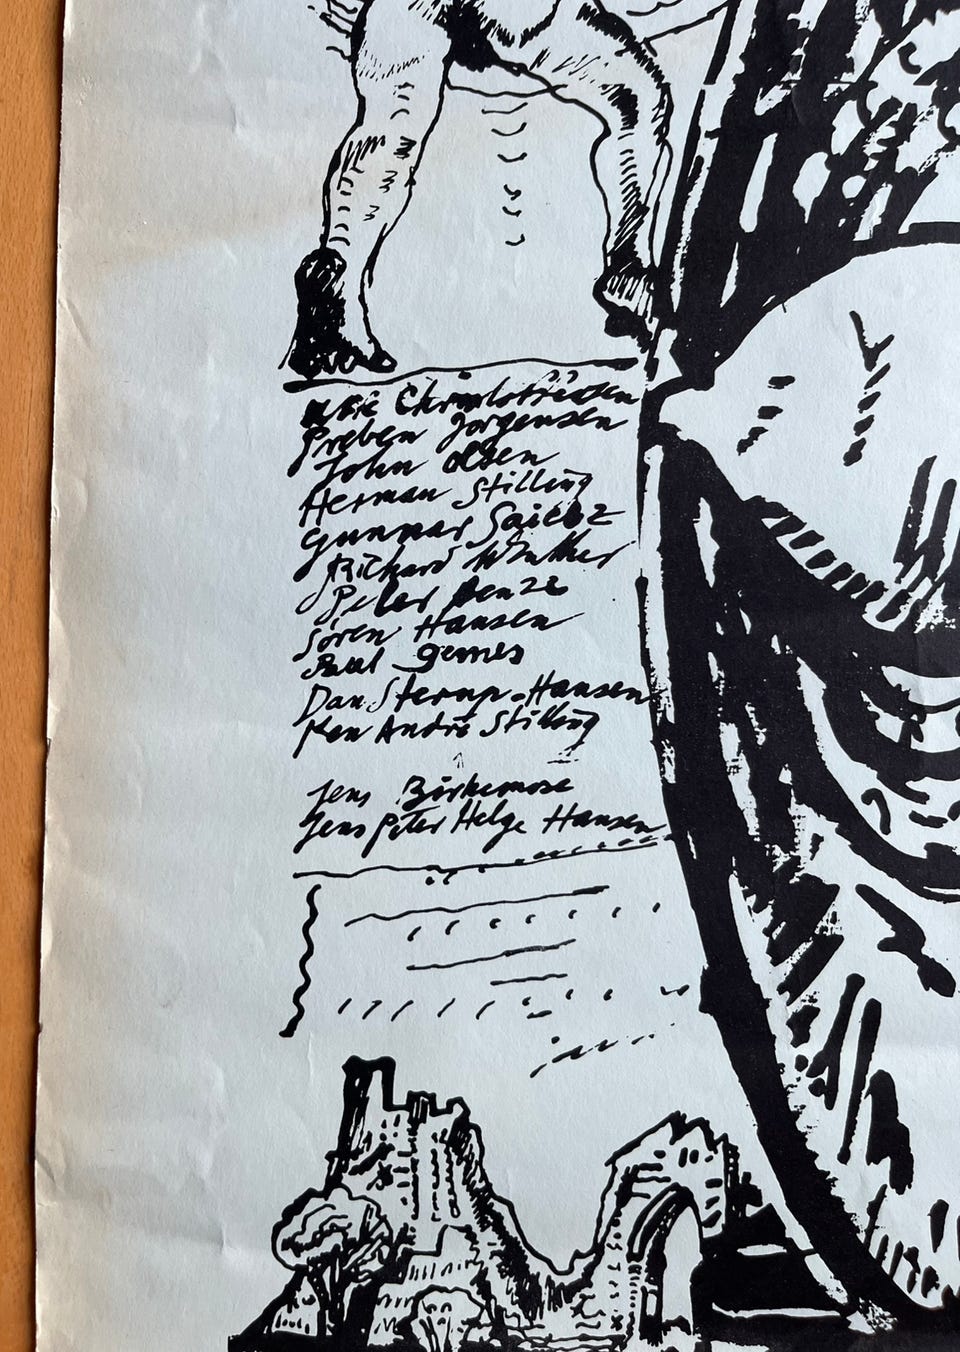 Preben Jorgensen
John Olsen
Herman Stilling
Gunnar
Richard Winther
Peter
Sören Hansen
Gernes
Dan Sterup-Hansen
Ken André Stilling
Jens Birkemose
Jens Peter Helge Hansen